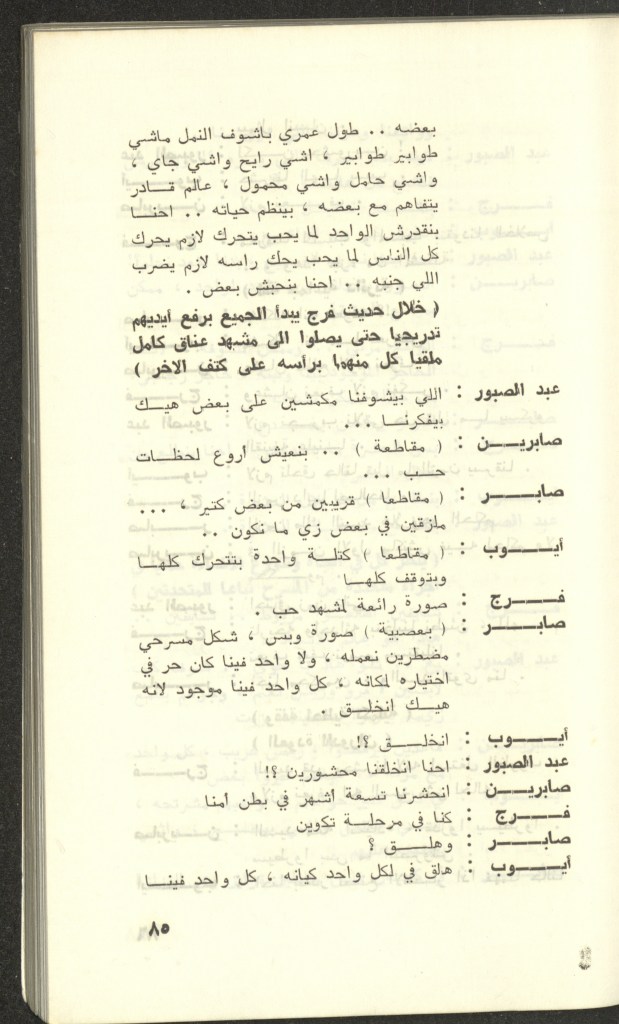 بعضه .. طول عمري باشوف النمل ماشي
طوابير طوابير ، اشي رايح واشي جاي ،
واشي حامل واشي محمول ، عالم قادر
يتفاهم مع بعضه ، بينظم حياته .. احنا
بنقدرش الواحد لما يحب يتحرك لازم يحرك
كل الناس لما يحب يحك راسه لازم يضرب
اللي جنبه .. احنا بنحبش بعض .
( خلال حديث فرج يبدأ الجميع برفع أيديهم
تدريجيا حتى يصلوا الى مشهد عناق كامل
ملقيا كل منهما برأسه على كتف الاخر )
عبد الصبور : اللي بيشوفنا مكمشين على بعض هيك
بيفكرنا ...
صابرين : ( مقاطعة ) .. بنعيش أروع لحظات
حب ...
صابر : ( مقاطعا ) قريبين من بعض كتير ، ...
ملزقين في بعض زي ما نكون ..
أيوب : ( مقاطعا ) كتلة واحدة بتتحرك كلها
وبتوقف كلها
فرج : صورة رائعة لمشهد حب .
صابر : ( بعصبية ) صورة وبس ، شكل مسرحي
مضطرين نعمله ، ولا واحد فينا كان حر في
اختياره لمكانه ، كل واحد فينا موجود لانه
هيك انخلق .
أيوب : انخلق ؟!
عبد الصبور : احنا انخلقنا محشورين ؟!
صابرين : انحشرنا تسعة أشهر في بطن أمنا
فرج : كنا في مرحلة تكوين
صابر : وهلق ؟
أيوب : هالق في لكل واحد كيانه ، كل واحد فينا
٨٥